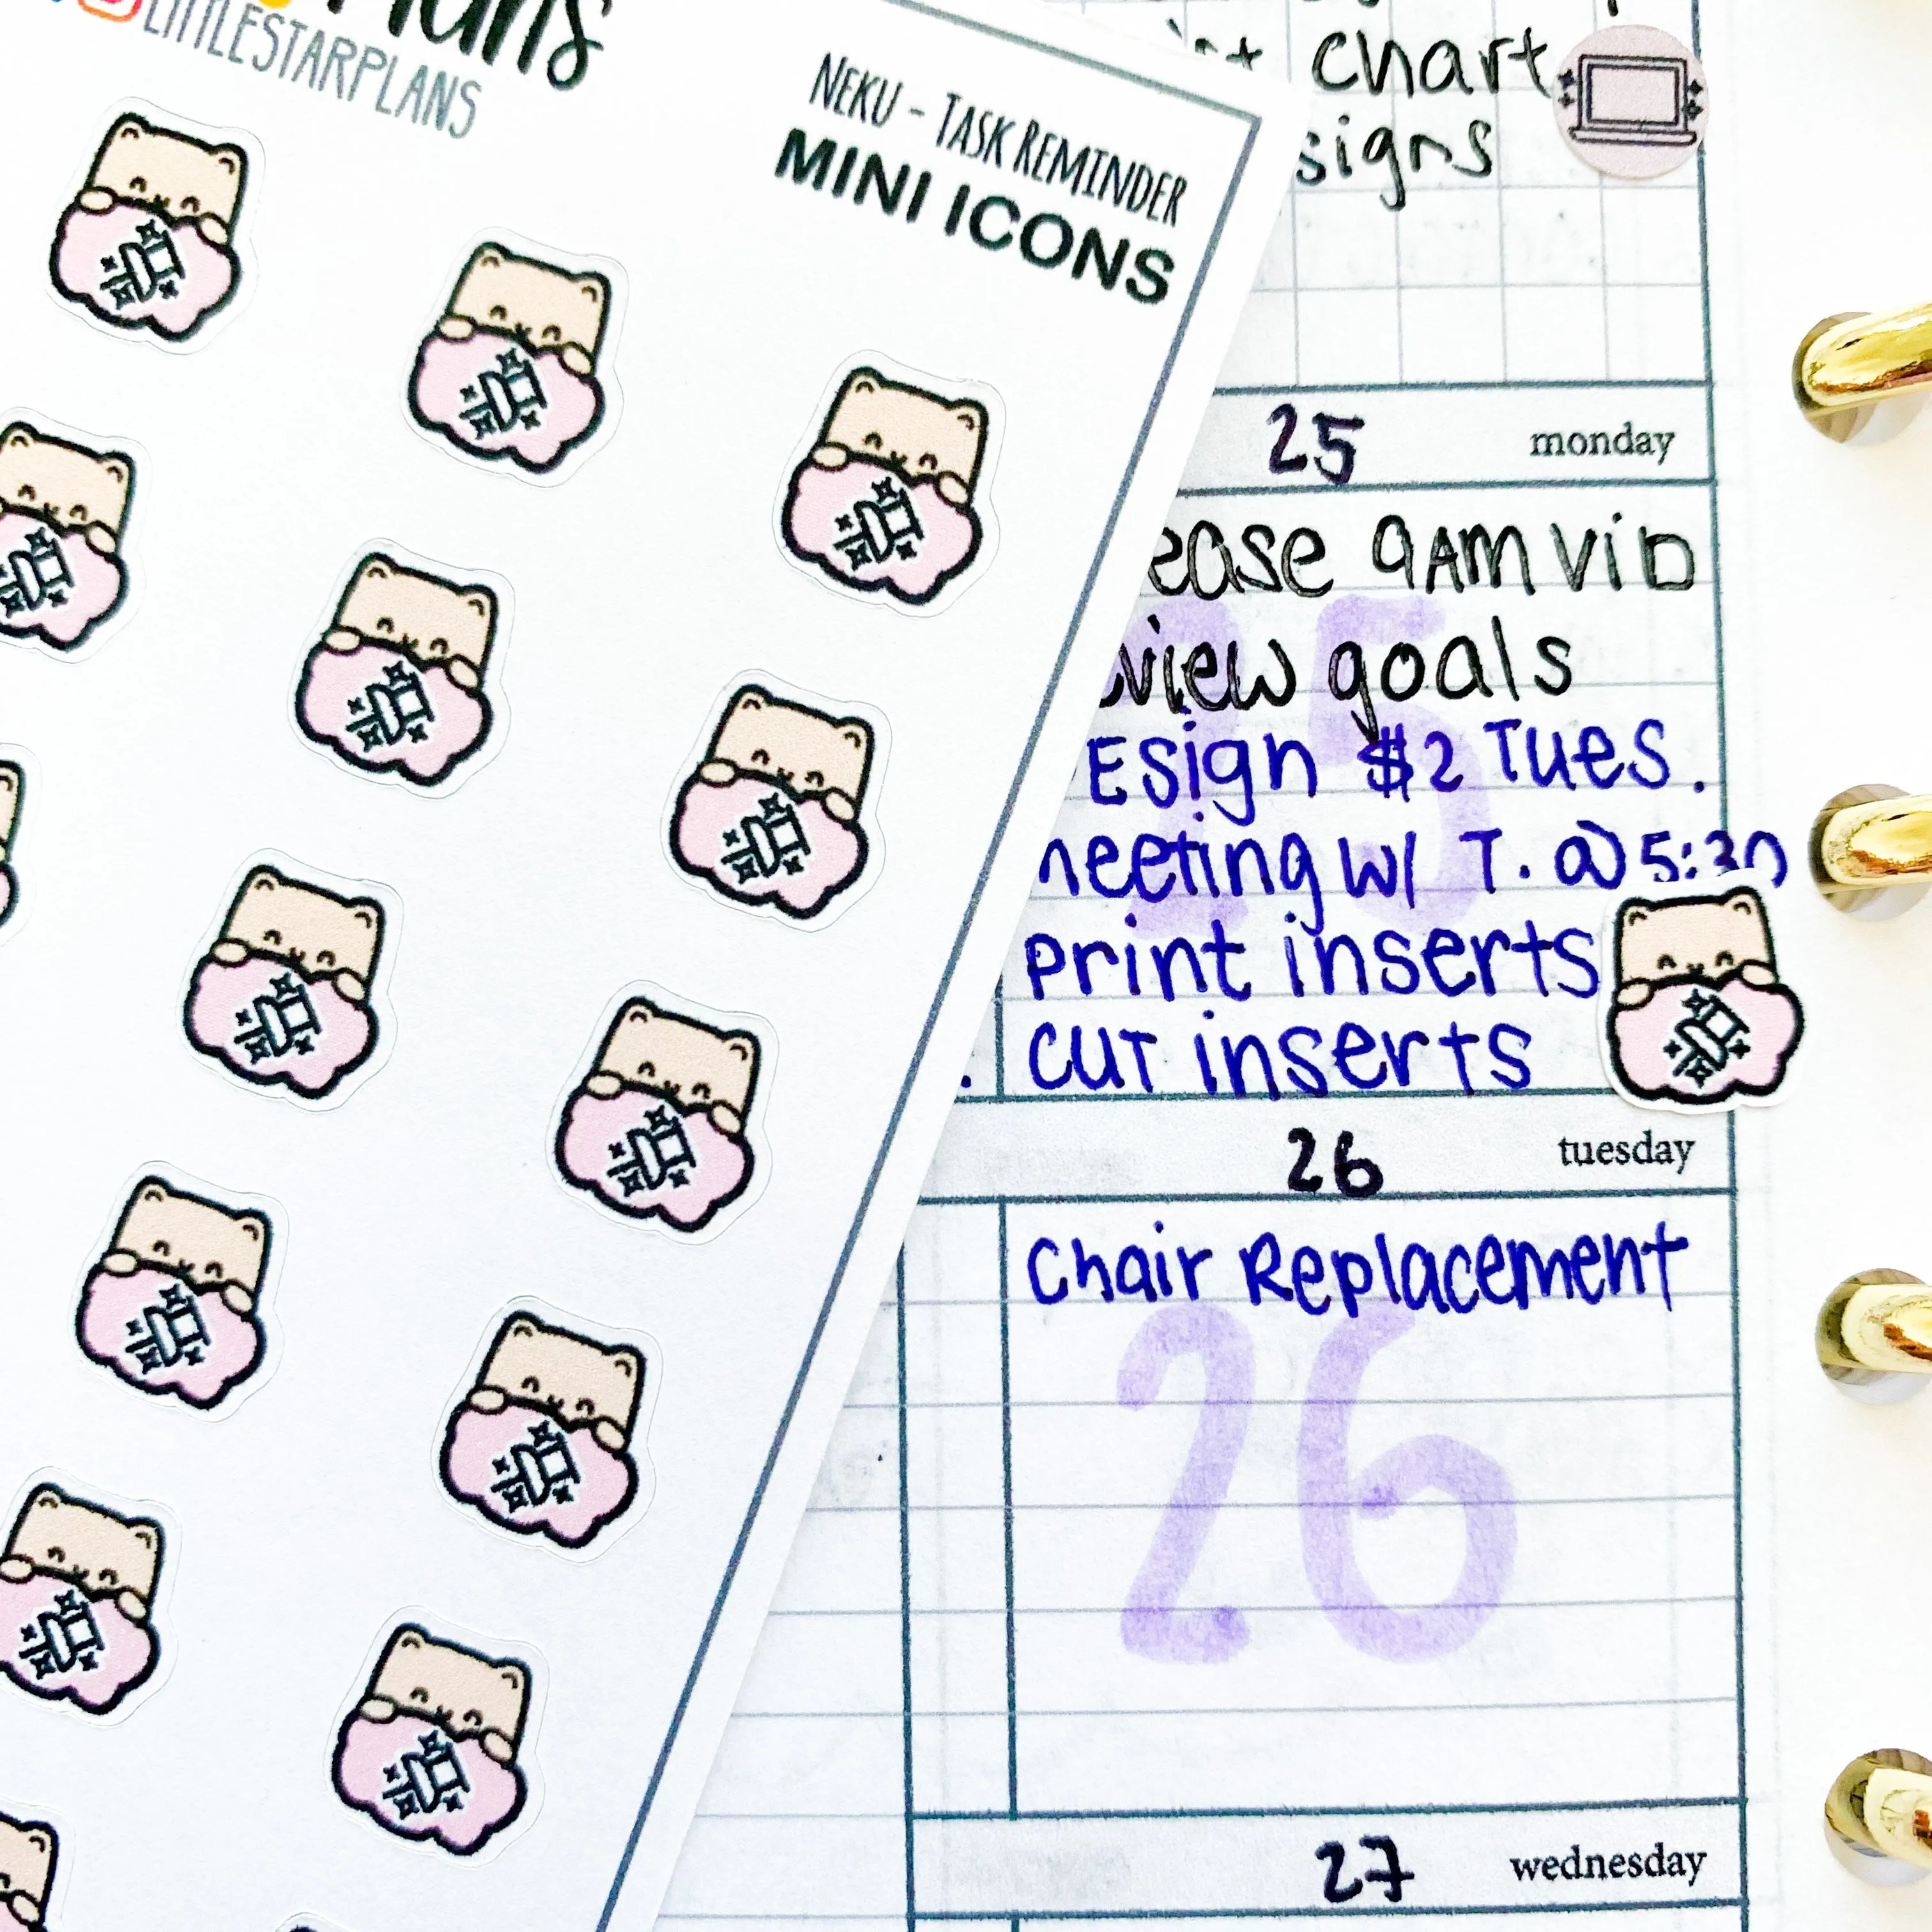 Plans
LITTLESTARPLANS
NEKU - TASK REMINDER
MINI ICONS
chart
signs
25 monday
ease 9AM VID
view goals
Esign $2 Tues.
meeting w/ T. @ 5:30
print inserts
cut inserts
26 tuesday
Chair Replacement
26
27 wednesday